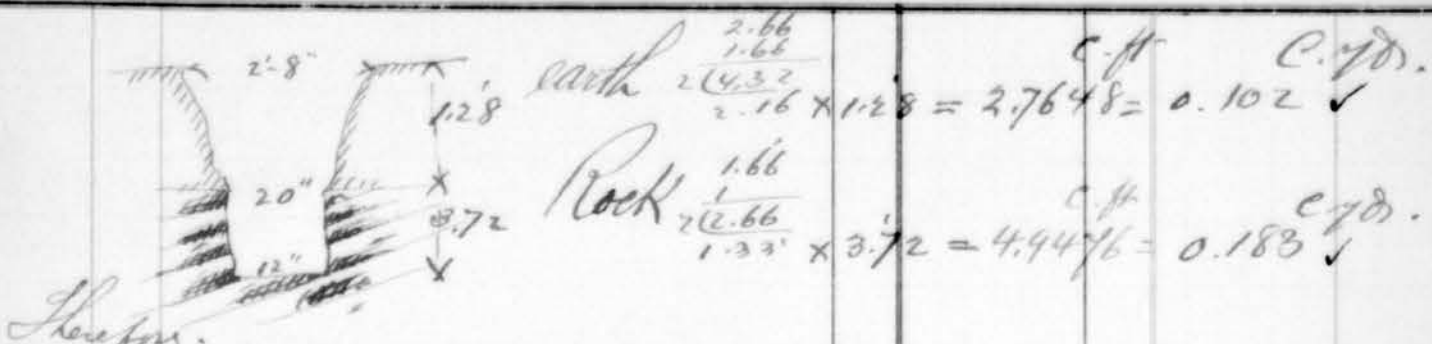 2'-8"
1.28
20"
3.72
12"
earth
2.66
1.66
2(4.32
2.16 × 1.28 = 2.7648 = 0.102 ✓
c. ft C. yds.
Rock
1.66
1
2(2.66
1.33 × 3.72 = 4.9476 = 0.183 ✓
c. ft c. yds.
Therefore.